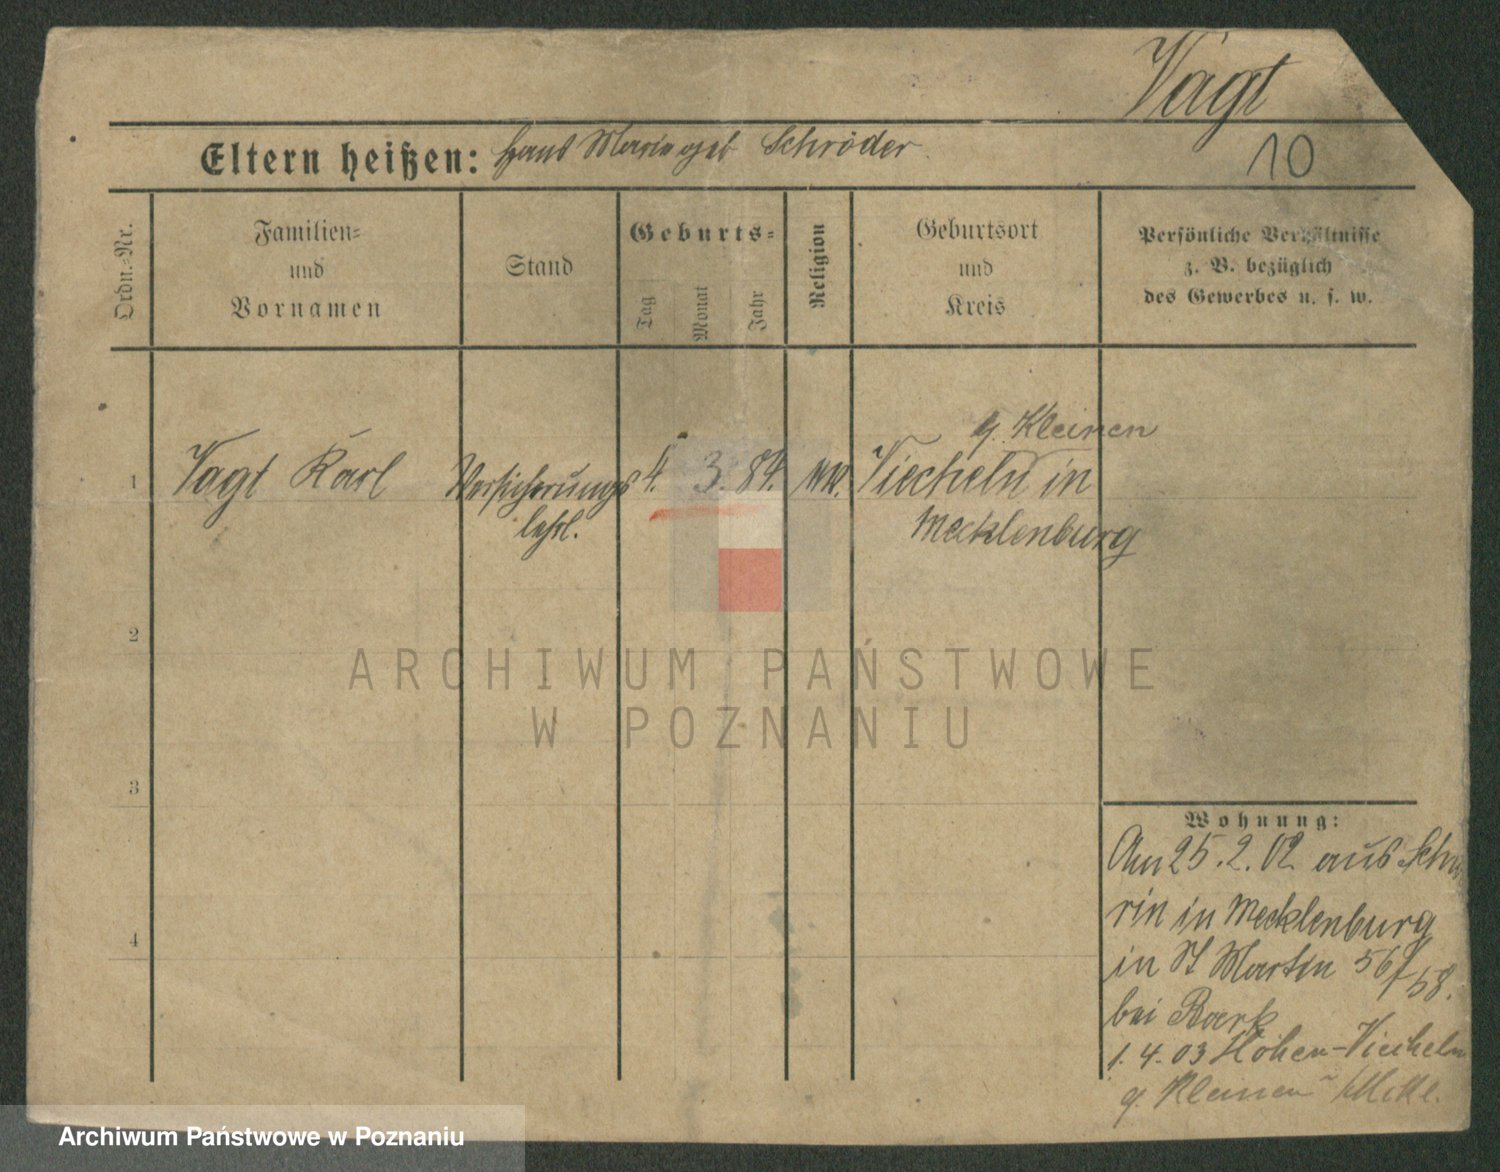 Vagt
10
Eltern heißen: Hans Marie geb Schröder
Ordn.=Nr.
Familien=
und
Vornamen
Stand
Geburts=
Tag
Monat
Jahr
Religion
Geburtsort
und
Kreis
Persönliche Verhältnisse
z. B. bezüglich
des Gewerbes u. s. w.
g. Kleinen
1 Vagt Karl Versicherungs 4. 3. 84. Viecheln in
lehrl. Mecklenburg
2
3
4
Wohnung:
Am 25.2.02 aus Schwe
rin in Mecklenburg
in St Martin 56/58.
bei Bark
1.4.03 Hohen-Viecheln
g. Kleinen
ARCHIWUM PAŃSTWOWE
W POZNANIU
Archiwum Państwowe w Poznaniu